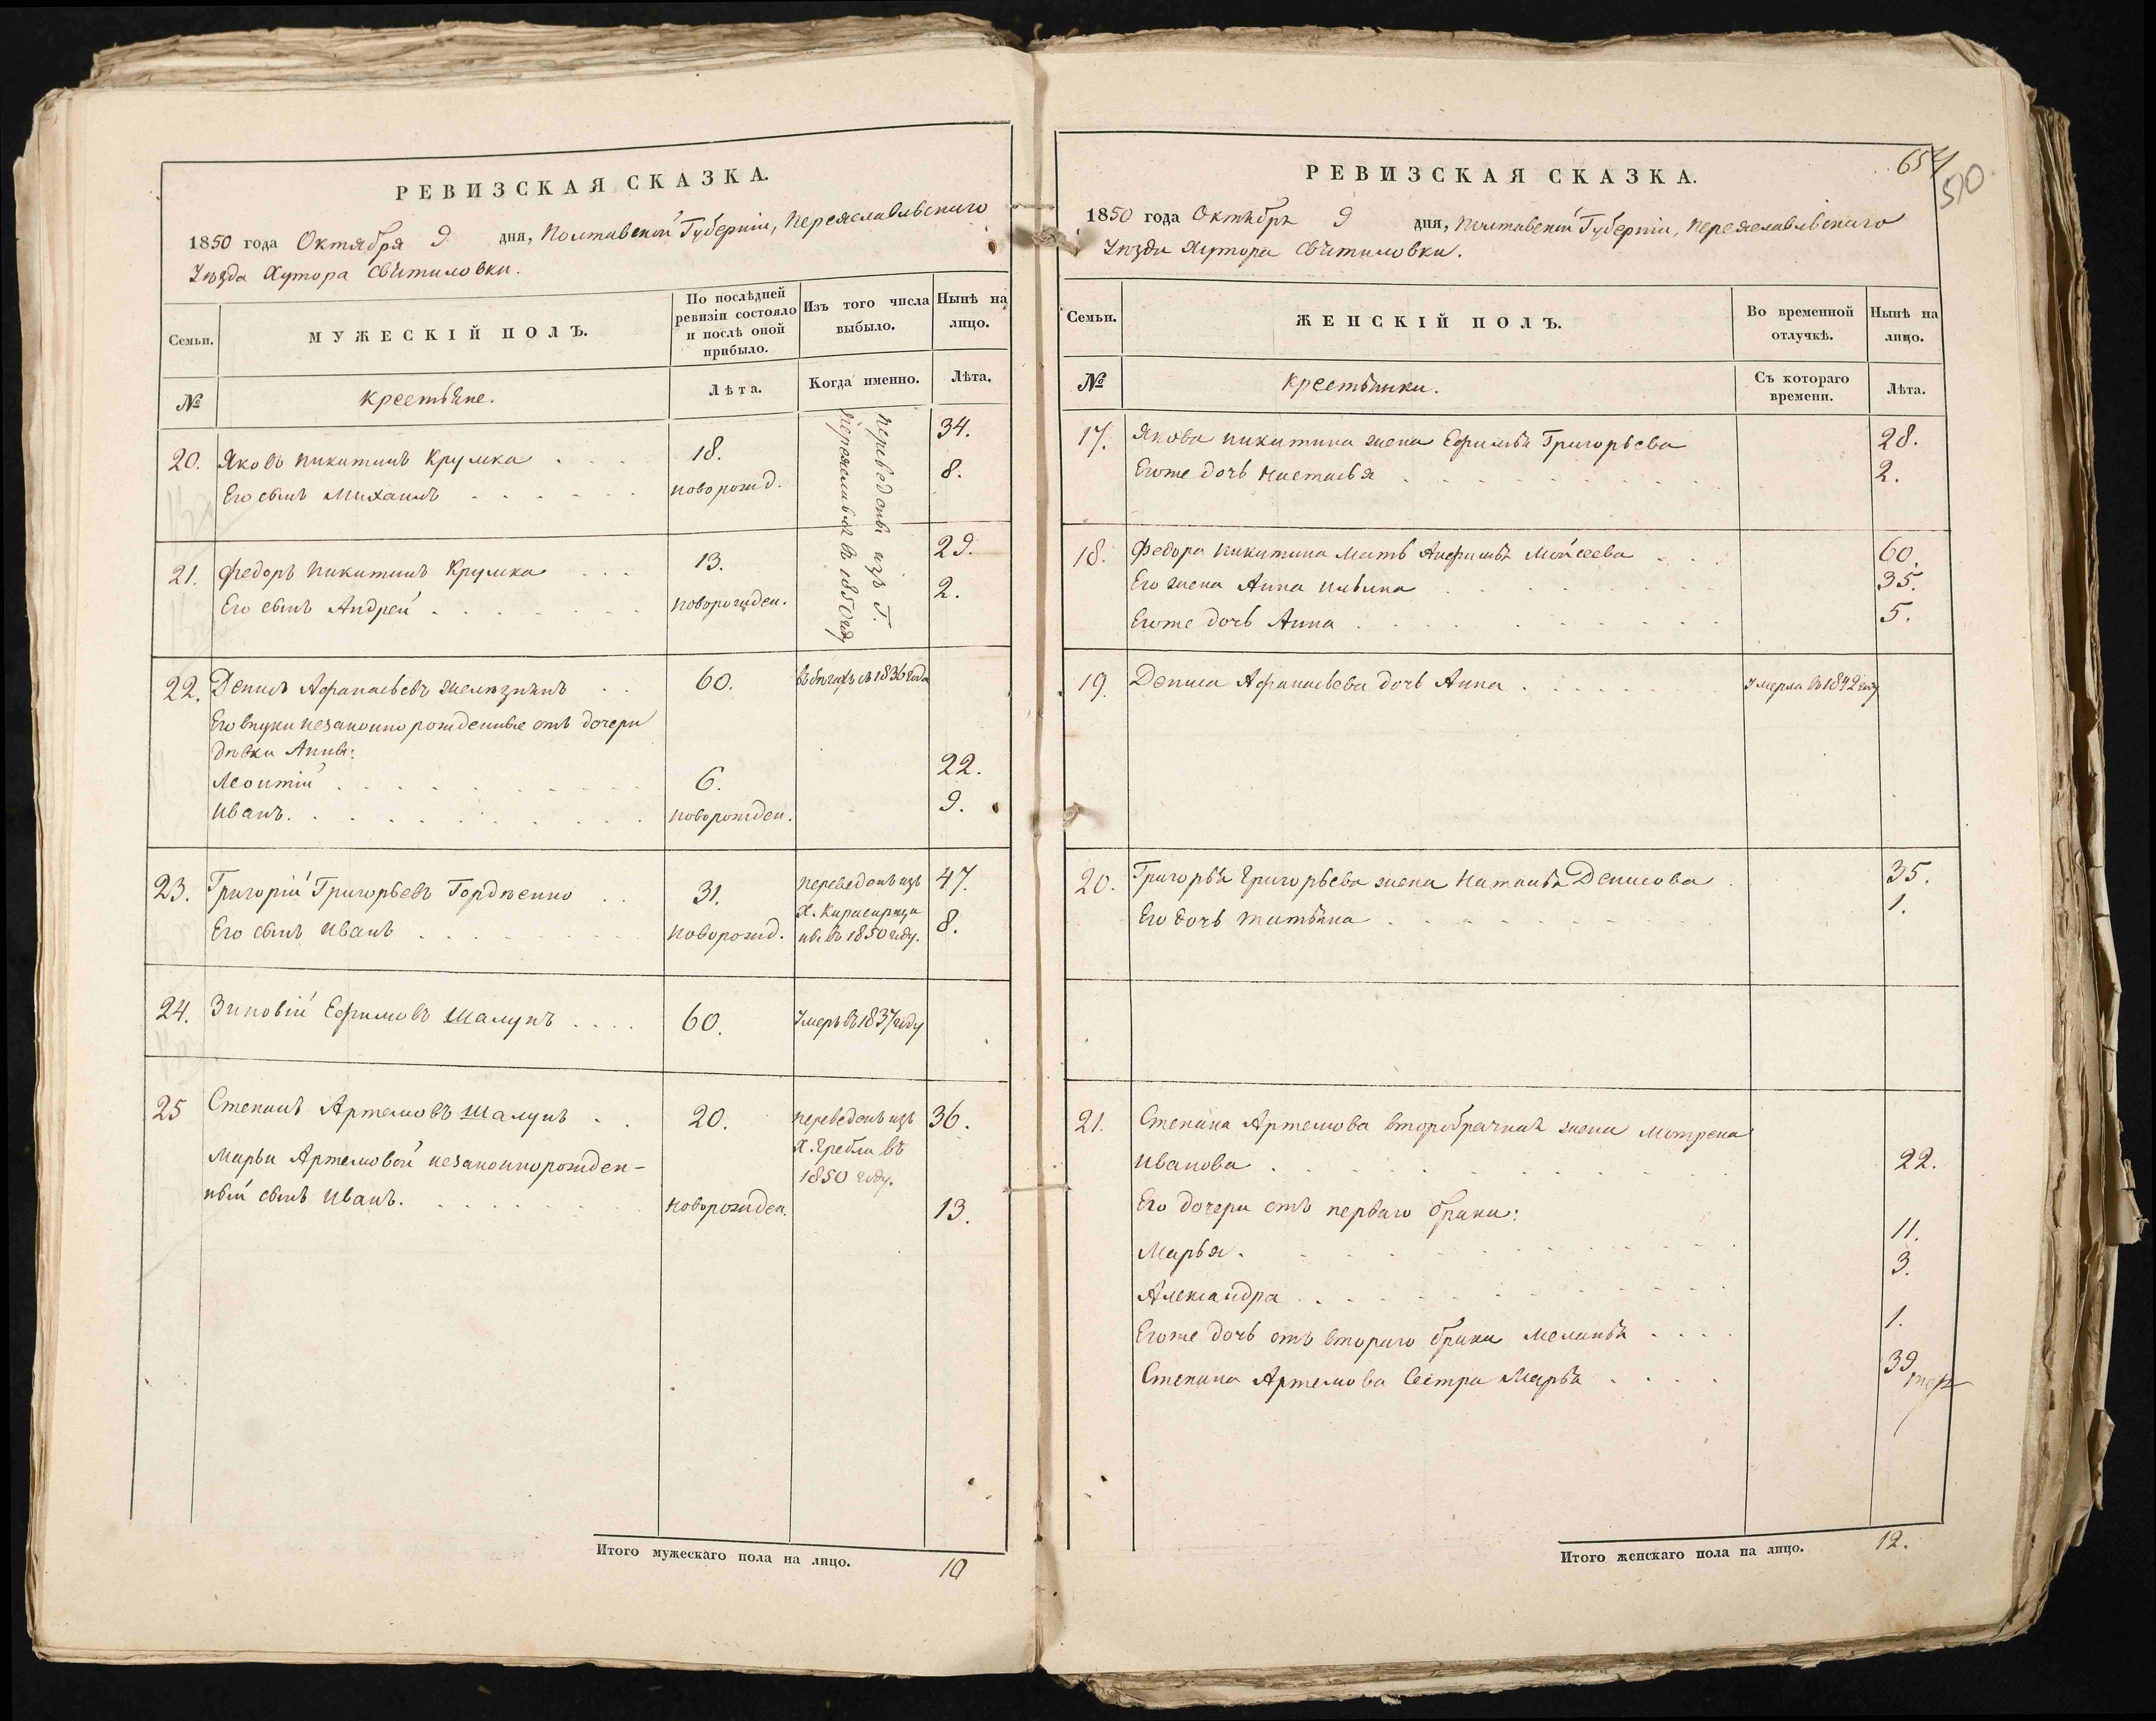 РЕВИЗСКАЯ СКАЗКА.
1850 года Октября 9 дня, Полтавской Губерніи, Переяславльскаго
Уѣзда Хутора Свѣтиловки.
Семьи.
МУЖЕСКІЙ ПОЛЪ.
По послѣдней ревизіи состояло и послѣ оной прибыло.
Изъ того числа выбыло.
Нынѣ на лицо.
№
Крестьяне.
Лѣта.
Когда именно.
Лѣта.
20. Яковъ Никитинъ Крумка 18. 34.
Его сынъ Михаилъ новорожд. 8.
переведены изъ Г.
Переяславля въ 1850 году
21. Федоръ Никитинъ Крумка 13. 29.
Его сынъ Андрей новорожден. 2.
22. Денисъ Афанасьевъ Желѣзнякъ 60. въ бѣгахъ съ 1836 года
Его внуки незаконно рожденные отъ дочери
дѣвки Анны:
Леонтій 6. 22.
Иванъ. новорожден. 9.
23. Григорій Григорьевъ Гордѣенко 31. переведенъ изъ 47.
Его сынъ Иванъ новорожд. въ 1850 году. 8.
24. Зиновій Ефимовъ Шалунъ 60. Умеръ въ 1837 году
25 Степанъ Артемовъ Шалунъ 20. переведенъ изъ 36.
Х. Гребли въ
1850 году.
Марьи Артемовой незаконнорожден-
ный сынъ Иванъ. новорожден. 13.
Итого мужескаго пола на лицо. 10
РЕВИЗСКАЯ СКАЗКА.
654
50
1850 года Октября 9 дня, Полтавской Губерніи, Переяславльскаго
Уѣзда Хутора Свѣтиловки.
Семьи.
ЖЕНСКІЙ ПОЛЪ.
Во временной отлучкѣ.
Нынѣ на лицо.
№
Крестьянки.
Съ котораго времени.
Лѣта.
17. Якова Никитина жена Ефимья Григорьева 28.
Егоже дочь Настасья 2.
18. Федора Никитина мать Анфимья Мойсеева 60.
Его жена Анна Ильина 35.
Егоже дочь Анна 5.
19. Дениса Афанасьева дочь Анна Умерла въ 1842 году
20. Григорья Григорьева жена Наталья Денисова 35.
Его дочь Татьяна 1.
21. Степана Артемова второбрачная жена Мотрена
Иванова 22.
Его дочери отъ перваго брака:
Марья. 11.
Александра 3.
Егоже дочь отъ втораго брака Меланья 1.
Степана Артемова Сестра Марья 39
Итого женскаго пола на лицо. 12.